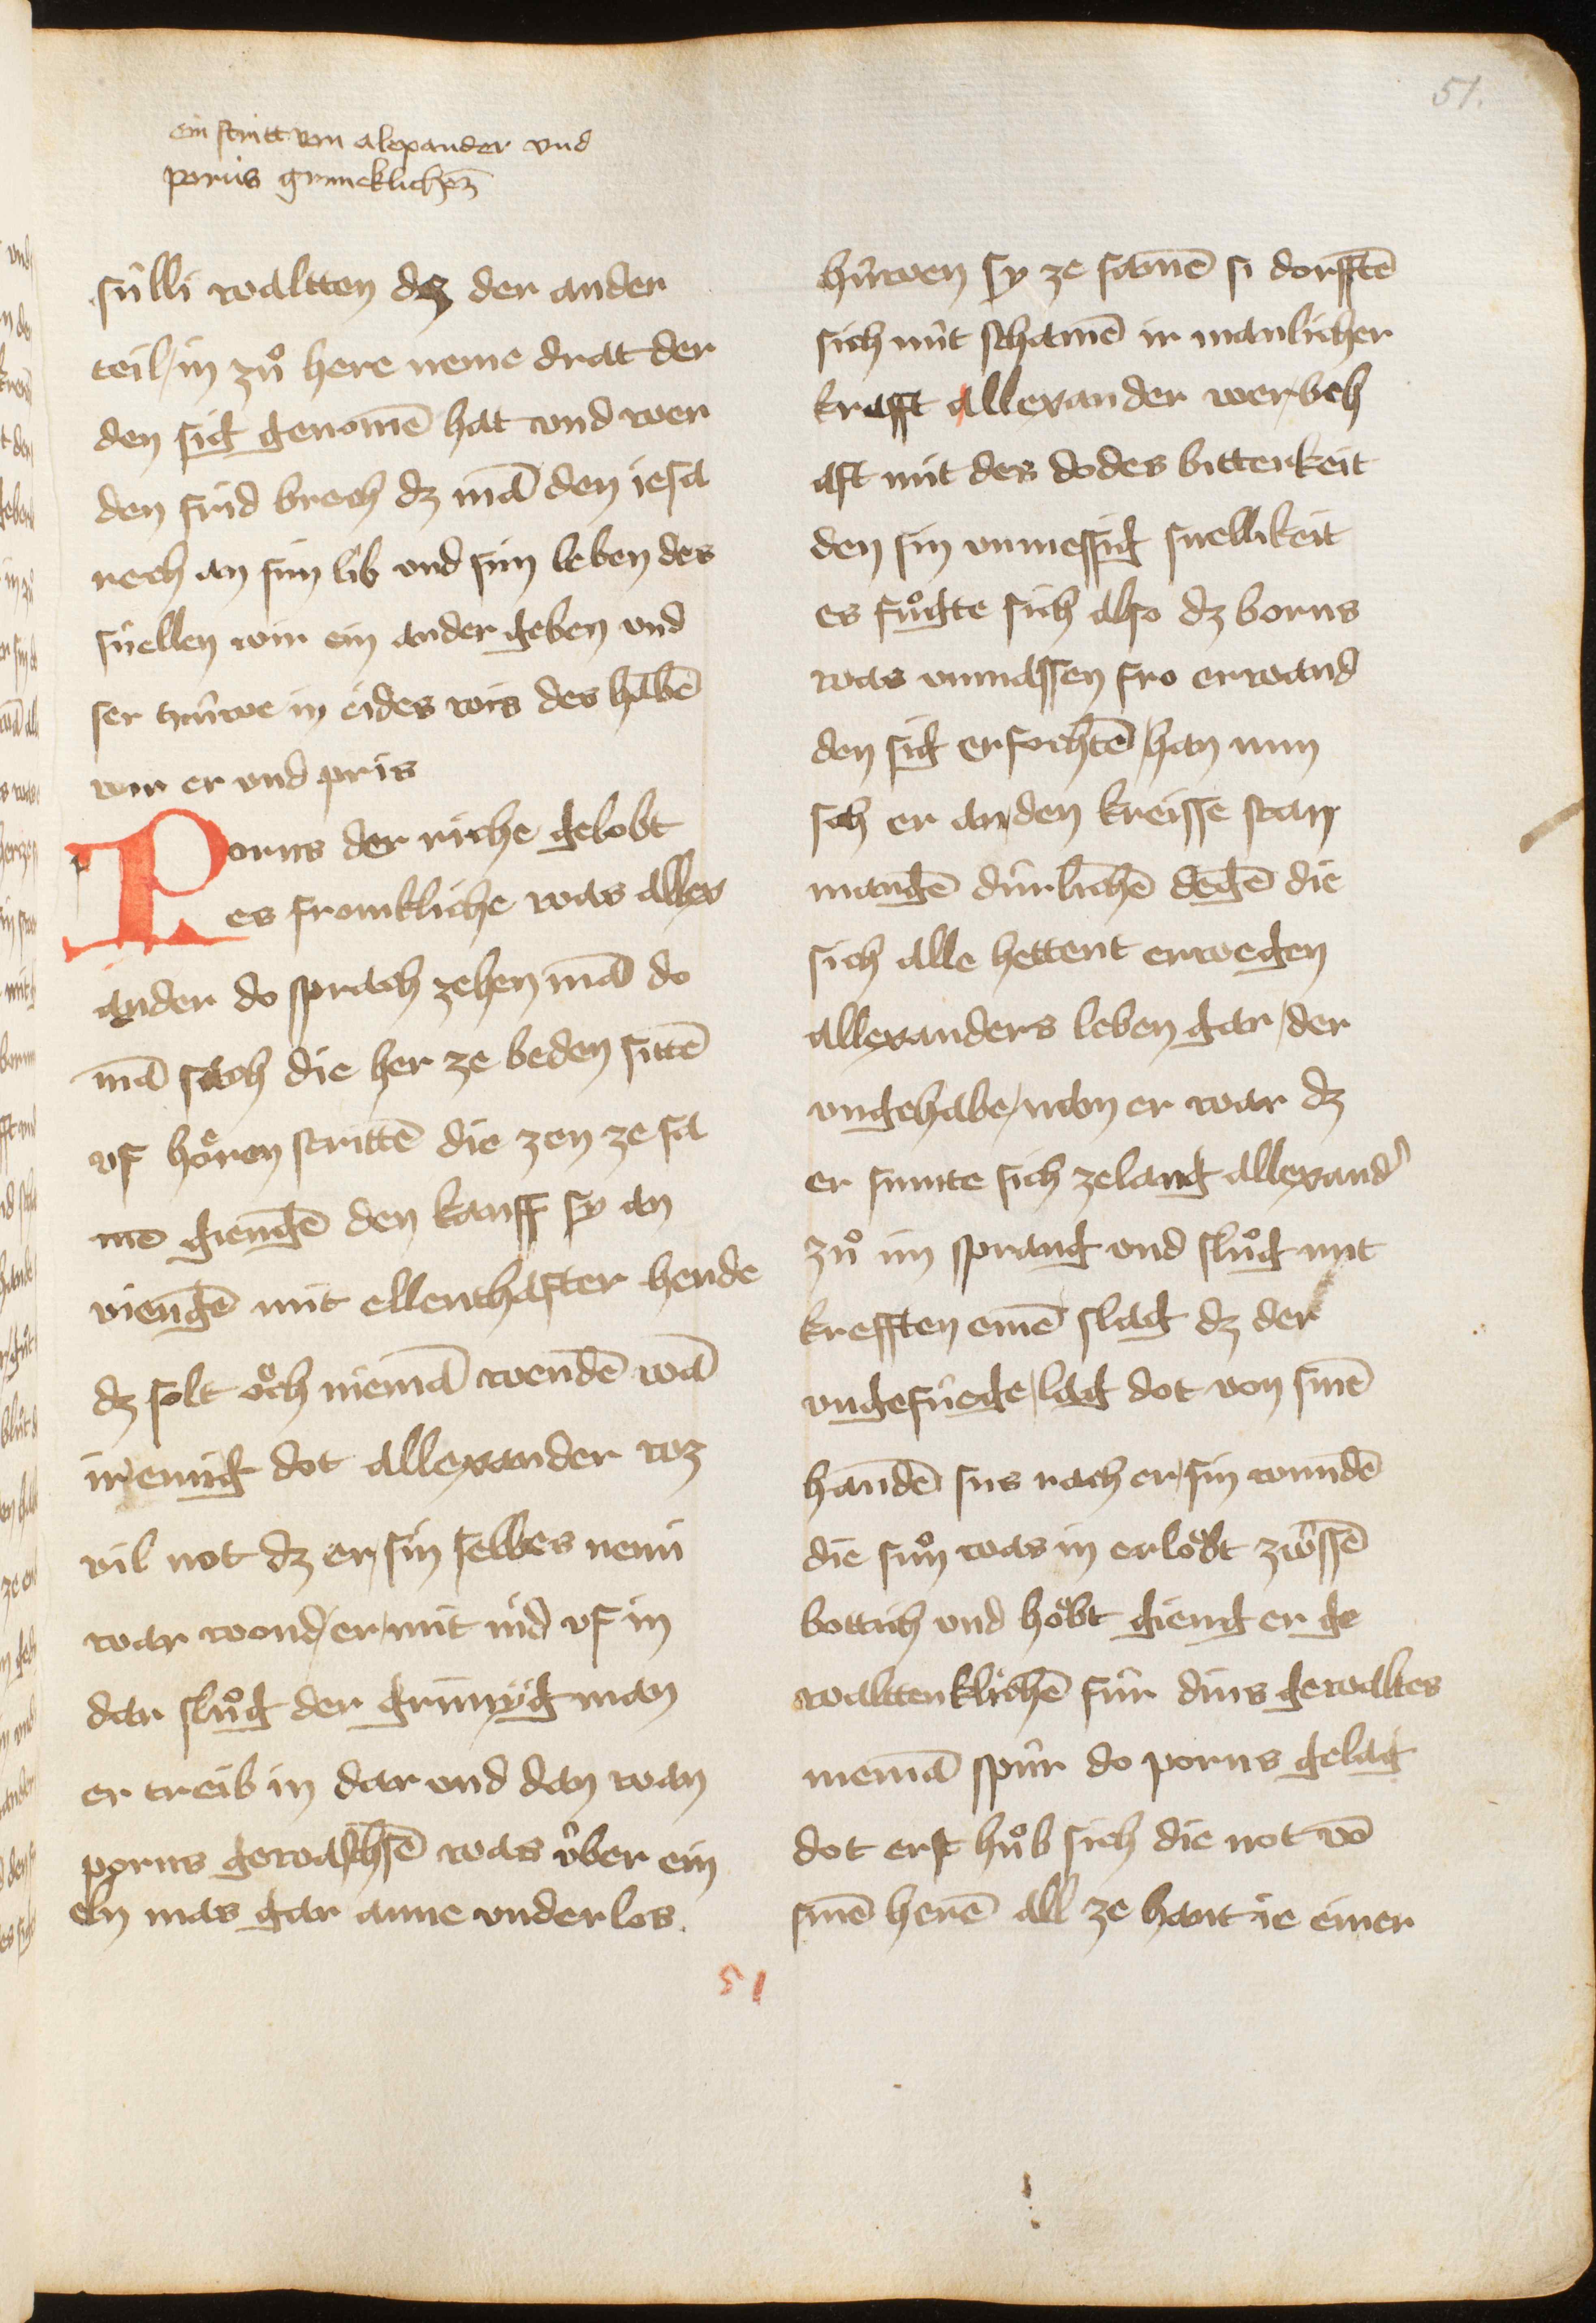 51.
ein stritt von alexander vnd
porus grimeklichen
sulli waltten dz der ander
teil in zuͦ here neme drat der
den sig genomē hat vnd wer
den frid brech dz mā den iesa
rech an sim lib vnd sim leben des
suͤllen wir ein ander geben vnd
ser truwe in eides wis des habē
wir er vnd pris
Porus der riche gelobt
es fromkliche was allex
ander do sprach zehen mā do
mā sach die her ze beden sittē
vf hoͤren strittē die zen ze sa
mē giengē den kanff sy an
viengē mit ellenthafter hende
dz solt oͮch niemā wendē wā
ir einig dot allexander wz
vil not dz er sin selbes nem
war wond er mit nid vf in
dar sluͦg der grimyg man
er treib in dar vnd dan wan
porus gewachsē was vͤber ein
eln mas gar anne vnderlos.
huwen sy ze samē si dorfftē
sich nuͤt schamē ir manlicher
krafft allexander werbeh
aft mit des dodes bitterkeit
den sin vnmessig snellikeit
es fuͦgte sich also dz borus
was vnmassen fro er wand
den sig erfochtē han nun
sach er an den kreisse stan
mangē duͤrlichē degē die
sich alle hettent erwegen
allexanders leben gar der
vngehabe nan er war dz
er sumte sich ze lang allexand'
zuͦ im sprang vnd sluͦg mit
krefften einē slag dz der
vngefuͤege lag dot von sinē
handē sus rach er sin wundē
die suͦn was in erloͤbt zwͤssē
bottich vnd hoͤbt gieng er ge
walttenklichē fuͤr dins gewaltes
niemā spuͤr do porus gelag
dot erst huͦb sich die not vō
sinē herē all ze hant ie einer
51